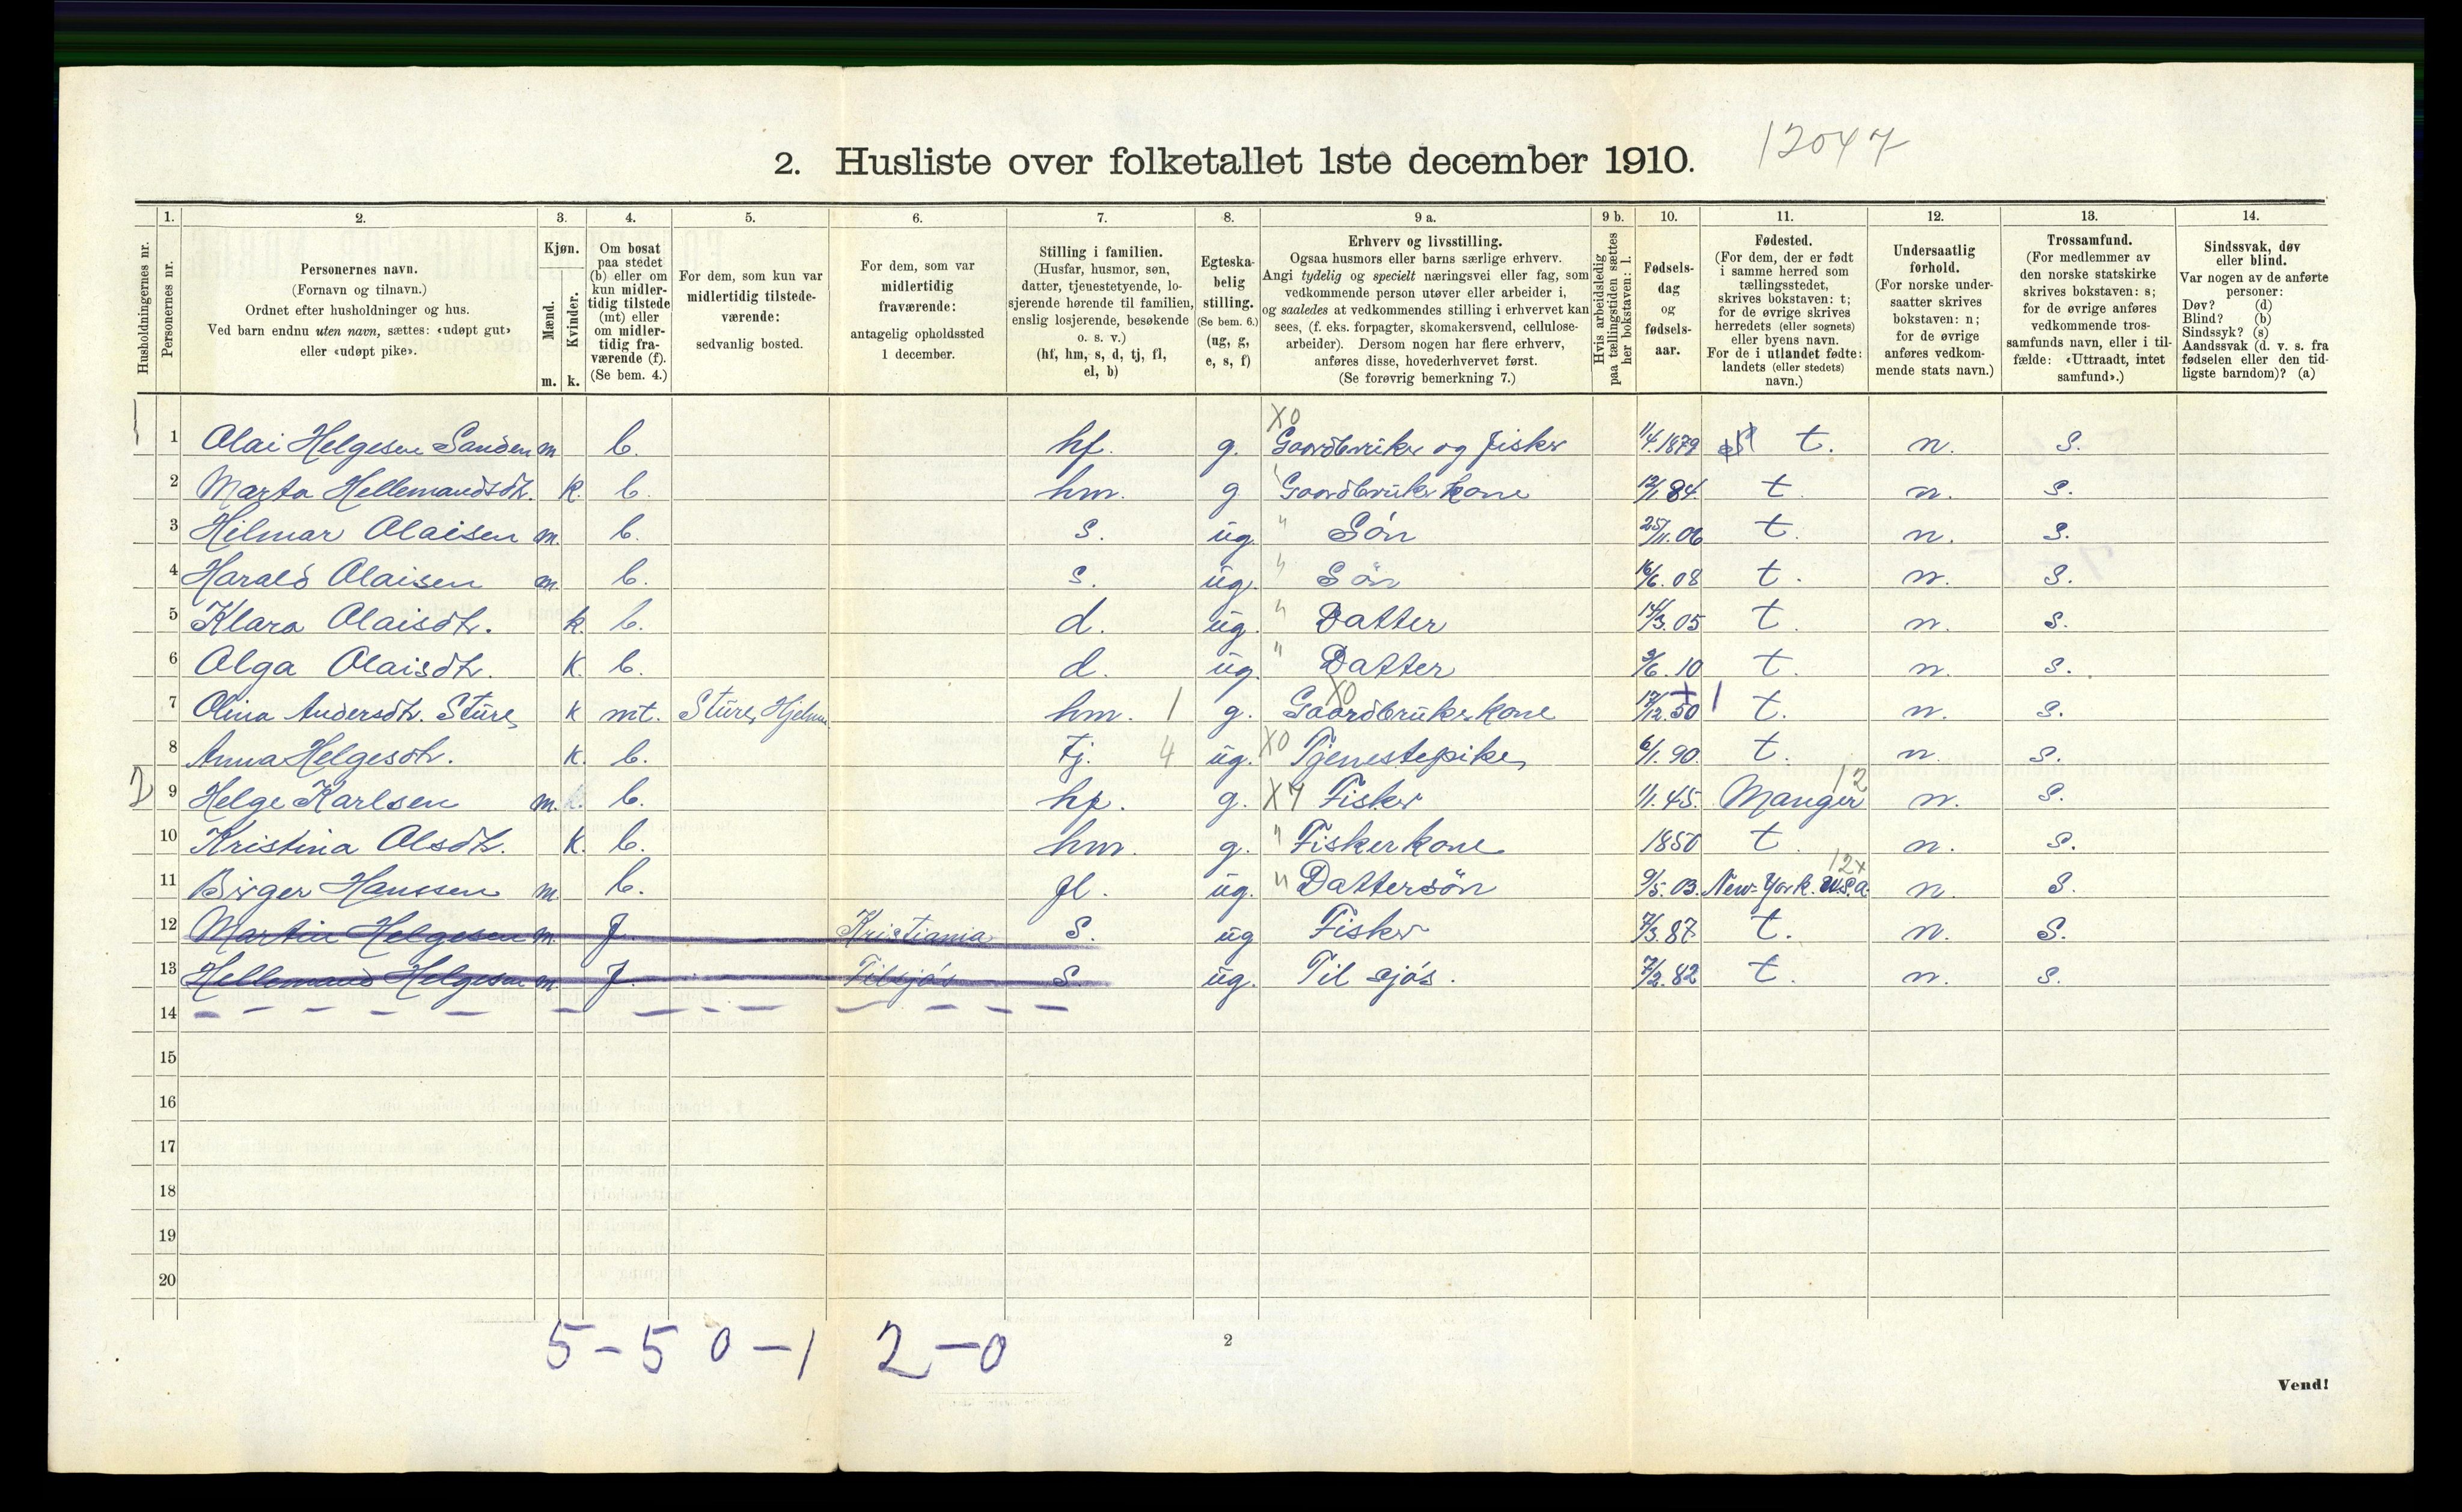 2. Husliste over folketallet 1ste december 1910.
12047
Husholdningernes nr.
1.
Personernes nr.
2.
Personernes navn.
(Fornavn og tilnavn.)
Ordnet efter husholdninger og hus.
Ved barn endnu uten navn, sættes: «udøpt gut»
eller «udøpt pike».
3.
Kjøn.
Mænd.
Kvinder.
m. k.
4.
Om bosat
paa stedet
(b) eller om
kun midler-
tidig tilstede
(mt) eller
om midler-
tidig fra-
værende (f).
(Se bem. 4.)
5.
For dem, som kun var
midlertidig tilstede-
værende:
sedvanlig bosted.
6.
For dem, som var
midlertidig
fraværende:
antagelig opholdssted
1 december.
7.
Stilling i familien.
(Husfar, husmor, søn,
datter, tjenestetyende, lo-
sjerende hørende til familien,
enslig losjerende, besøkende
o. s. v.)
(hf, hm, s, d, tj, fl,
el, b)
8.
Egteska-
belig
stilling.
(Se bem. 6.)
(ug, g,
e, s, f)
9 a.
Erhverv og livsstilling.
Ogsaa husmors eller barns særlige erhverv.
Angi tydelig og specielt næringsvei eller fag, som
vedkommende person utøver eller arbeider i,
og saaledes at vedkommendes stilling i erhvervet kan
sees, (f. eks. forpagter, skomakersvend, cellulose-
arbeider). Dersom nogen har flere erhverv,
anføres disse, hovederhvervet først.
(Se forøvrig bemerkning 7.)
9 b.
Hvis arbeidsledig
paa tællingstiden sættes
her bokstaven: l.
10.
Fødsels-
dag
og
fødsels-
aar.
11.
Fødested.
(For dem, der er født
i samme herred som
tællingsstedet,
skrives bokstaven: t;
for de øvrige skrives
herredets (eller sognets)
eller byens navn.
For de i utlandet fødte:
landets (eller stedets)
navn.)
12.
Undersaatlig
forhold.
(For norske under-
saatter skrives
bokstaven: n;
for de øvrige
anføres vedkom-
mende stats navn.)
13.
Trossamfund.
(For medlemmer av
den norske statskirke
skrives bokstaven: s;
for de øvrige anføres
vedkommende tros-
samfunds navn, eller i til-
fælde: «Uttraadt, intet
samfund».)
14.
Sindssvak, døv
eller blind.
Var nogen av de anførte
personer:
Døv? (d)
Blind? (b)
Sindssyk? (s)
Aandssvak (d. v. s. fra
fødselen eller den tid-
ligste barndom)? (a)
1 1 Olai Helgesen Sanden m b. hf. g. X0 Gaardbruker og fisker 11/4.1879 t. n. S.
2 Marta Hellemandsdtr. k. b. hm. g " Gaardbruker kone 12/1 84. t. n. S.
3 Hilmar Olaisen m. b. s. ug. " Søn 25/11.06 t. n. S.
4 Harald Olaisen m. b. s. ug. " Søn 16/6.08 t. n. S.
5 Klara Olaisdtr. k. b. d. ug. " Datter 14/3.05 t. n. S.
6 Olga Olaisdtr. k. b. d. ug. " Datter 3/6.10 t. n. S.
7 Olina Andersdtr. Sture k mt. Sture, Hjelme hm. 1 g. X0 Gaardbrukerkone 17/12.50 t. n. S.
8 Anna Helgesdtr. k. b. tj. 4 ug. X0 Tjenestepike 6/1.90. t. n. S.
2 9 Helge Karlsen m. b. hf. g. X4 Fisker 1/1.45. Manger 12 n. S.
10 Kristina Olsdtr. k. b. hm. g. " Fiskerkone 1850 t. n. S.
11 Birger Hanssen m b. fl. ug. " Dattersøn 9/5.03. New-York. U.S.a. 12x n. S.
12 Martin Helgesen m. f Kristiania S. ug Fisker 7/3.87. t. n. S.
13 Hellemand Helgesen m. f Tilsjøs S. ug. Til sjøs. 7/2.82 t. n. S.
14
15
16
17
18
19
20
5-5 0-1 2-0
2
Vend!